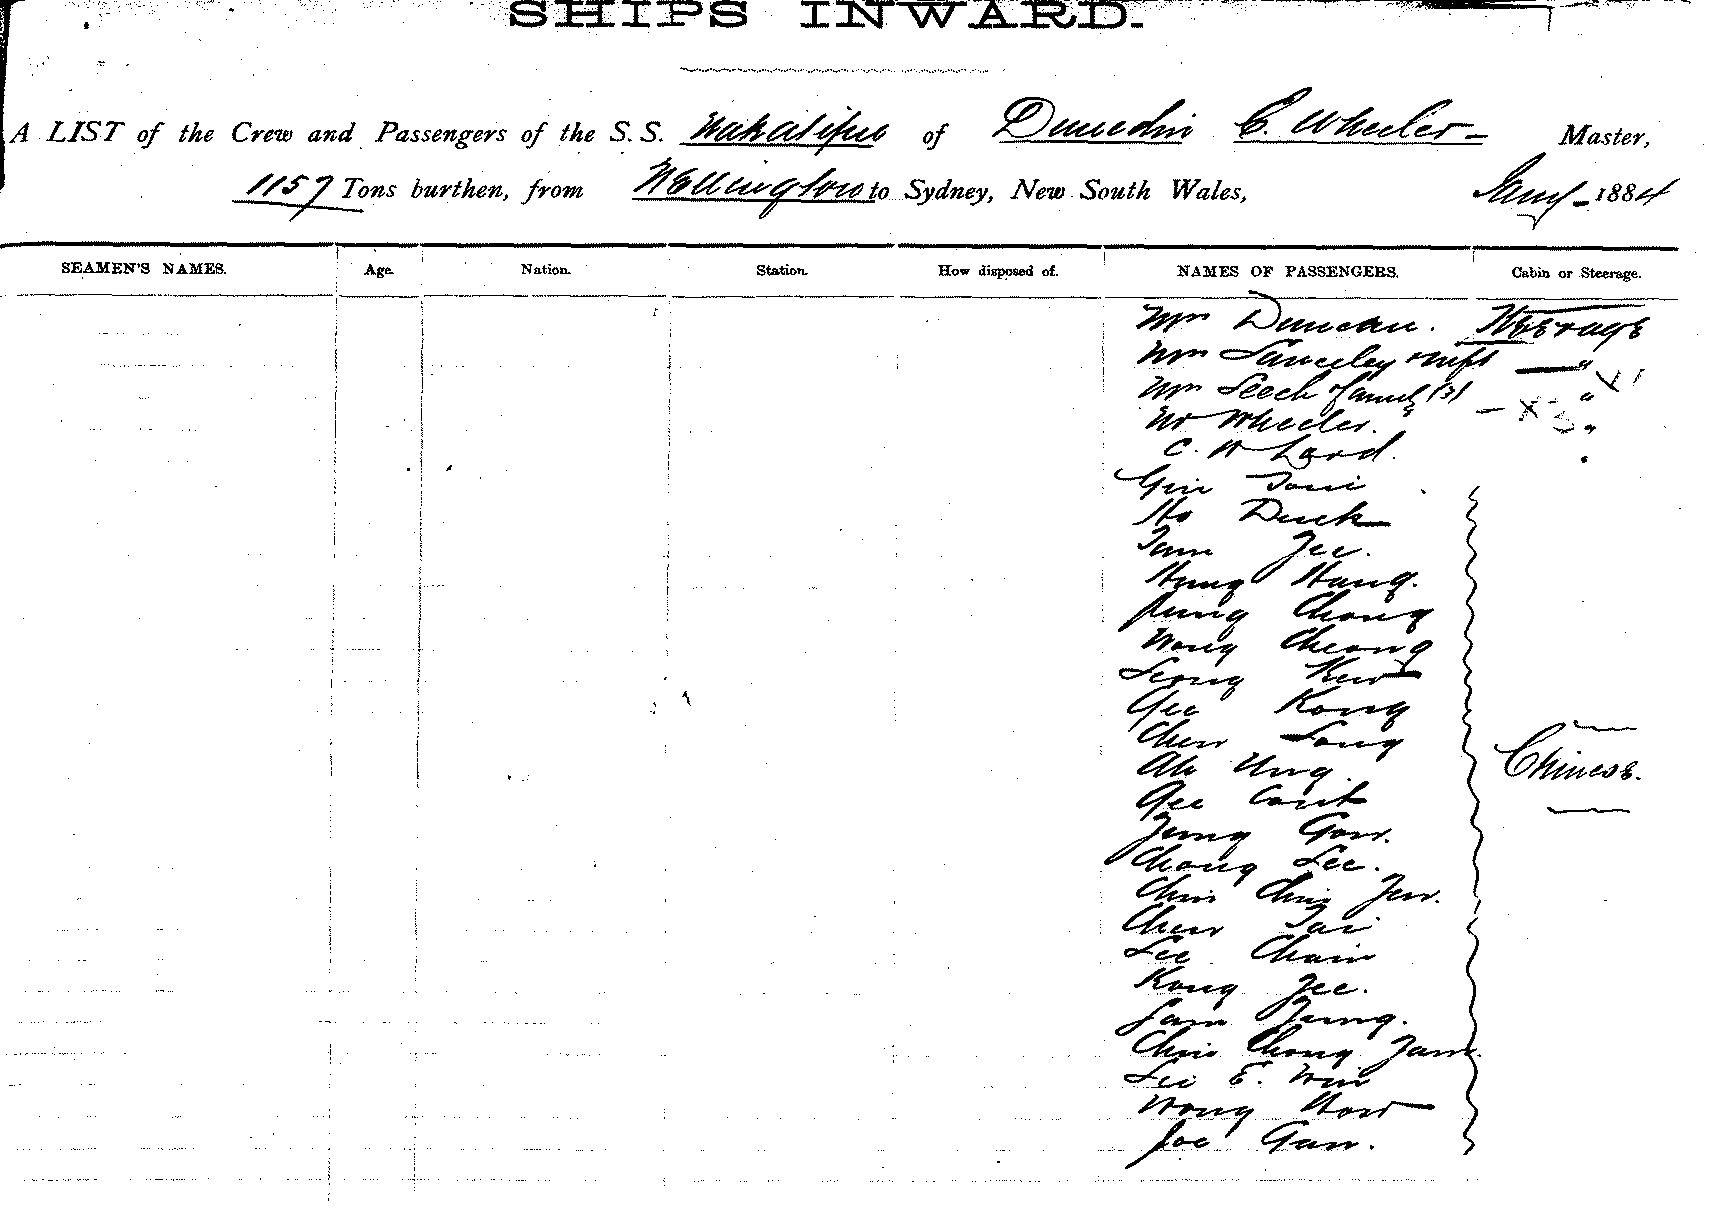 SHIPS INWARD.
A LIST of the Crew and Passengers of the S.S. Wakatipu of Dunedin C. Wheeler - Master,
1157 Tons burthen, from Wellington to Sydney, New South Wales, Jany - 1884
SEAMEN'S NAMES. Age. Nation. Station. How disposed of. NAMES OF PASSENGERS. Cabin or Steerage.
Mrs Duncan. Steerage
Mr Langley & wife "
Mrs Leech family (3) "
Mr Wheeler. "
C. W Lord. "
Gin
Ho Duck
Tam Jee.
Hung Hang.
Pung Chong
Wong Cheong
Leong Kew
Gee Kong
Chew Long
Ah Ung.
Gee
Jung Gow.
Chong Lee.
Chin Ching Jew.
Chew Tai
Lee Chain
Kong Jee.
Sam Jung.
Chin Chong Jam
Lee E. Win
Wong How
Joe Gan.
Chinese.